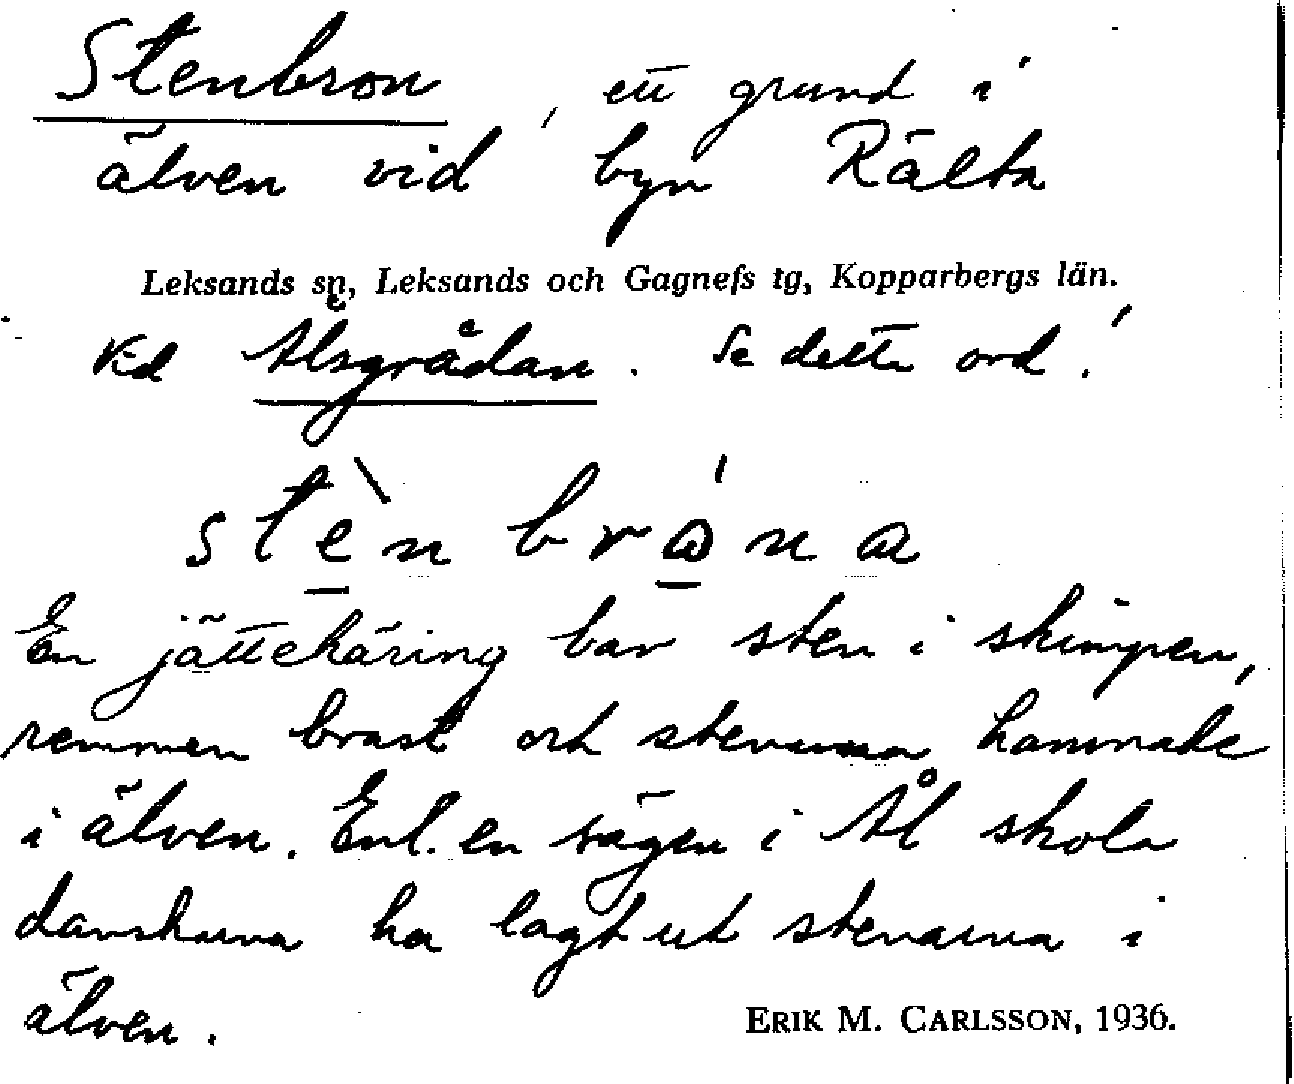 Stenbron, ett grund i
älven vid byn Rälta
Leksands sn, Leksands och Gagnefs tg, Kopparbergs län.
Vid Ålsgrådan. Se detta ord!
stènbrọ́na
En jättekäring bar sten i skinnpen,
remmen brast och stenarna hamnade
i älven. Enl. en sägen i Ål skola
danskarna ha lagt ut stenarna i
älven.
ERIK M. CARLSSON, 1936.